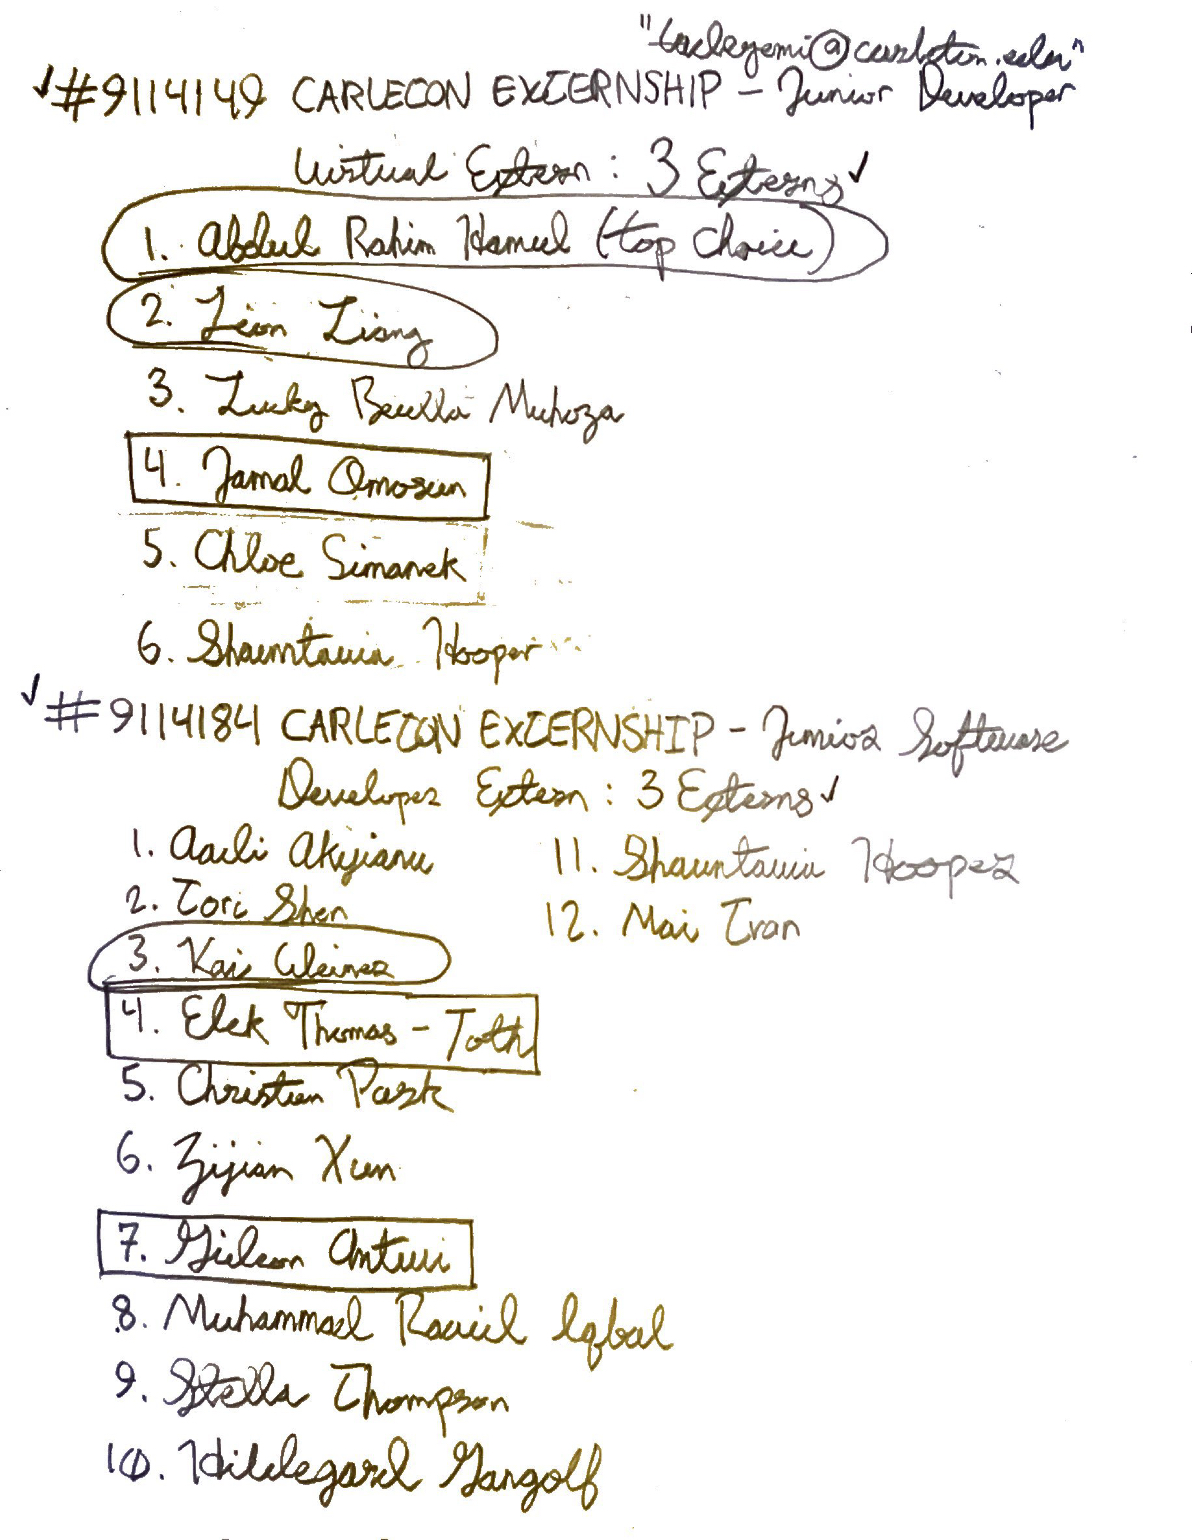 "tadeyemi@carleton.edu"
✓#9114149 CARLETON EXTERNSHIP - Junior Developer
Virtual Extern : 3 Externs ✓
1. Abdul Rahim Hameed (top choice)
2. Leon Liang
3. Lucky Beulla Muhoza
4. Jamal Omosun
5. Chloe Simanek
6. Shauntavia Hooper
✓#9114184 CARLETON EXTERNSHIP - Junior Software
Developer Extern : 3 Externs ✓
1. Aadi Akyianu
2. Tori Shen
3. Kai Weiner
4. Elek Thomas-Toth
5. Christian Park
6. Zijian Xun
7. Gideon Antwi
8. Muhammad Raviel Iqbal
9. Stella Thompson
10. Hildegard Gangolf
11. Shauntavia Hooper
12. Mai Tran